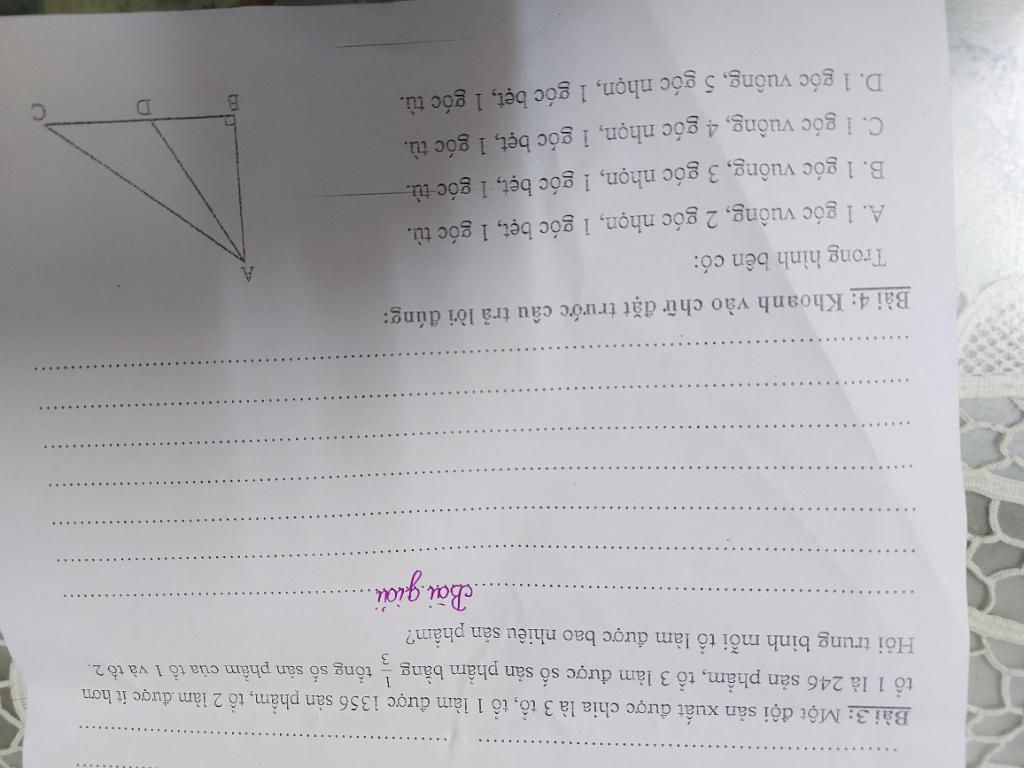 Bài 3: Một đội sản xuất được chia là 3 tổ, tổ 1 làm được 1356 sản phẩm, tổ 2 làm được ít hơn
tổ 1 là 246 sản phẩm, tổ 3 làm được số sản phẩm bằng 1/3 tổng số sản phẩm của tổ 1 và tổ 2.
Hỏi trung bình mỗi tổ làm được bao nhiêu sản phẩm?
Bài giải
Bài 4: Khoanh vào chữ đặt trước câu trả lời đúng:
Trong hình bên có:
A. 1 góc vuông, 2 góc nhọn, 1 góc bẹt, 1 góc tù.
B. 1 góc vuông, 3 góc nhọn, 1 góc bẹt, 1 góc tù.
C. 1 góc vuông, 4 góc nhọn, 1 góc bẹt, 1 góc tù.
D. 1 góc vuông, 5 góc nhọn, 1 góc bẹt, 1 góc tù.
A
B
D
C